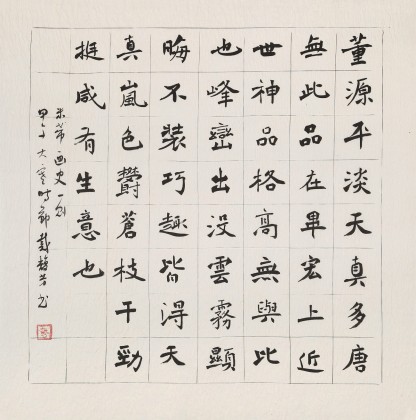 董源平淡天真多唐
無此品在畢宏上近
世神品格高無與比
也峰巒出没雲霧顯
晦不裝巧趣皆得天
真嵐色鬱蒼枝干勁
挺咸有生意也
米芾画史一则
甲午大寒时节戴
书